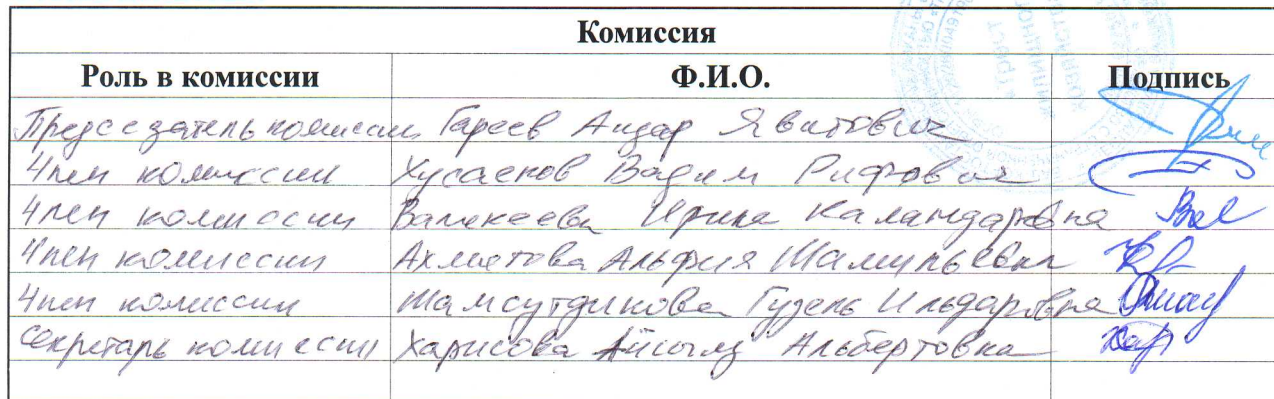 Комиссия
Роль в комиссии Ф.И.О. Подпись
Председатель комиссии Гареев Айдар Явитович
Член комиссии Хусаенов Вадим Рифович
Член комиссии Валекеева Ирина Каландаровна
Член комиссии Ахметова Альфия Шамильевна
Член комиссии Шамсутдинова Гузель Ильдаровна
Секретарь комиссии Харисова Айсылу Альбертовна